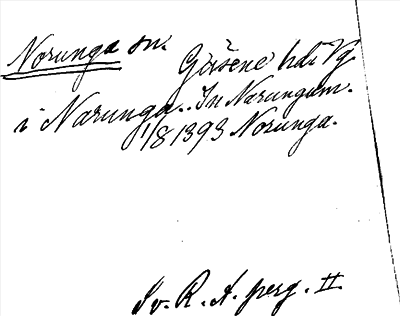 Norunga sn. Gäsene hd. Vg.
i Narunga. In Narungum.
1/8 1393 Norunga.
Sv. R. A. perg. II